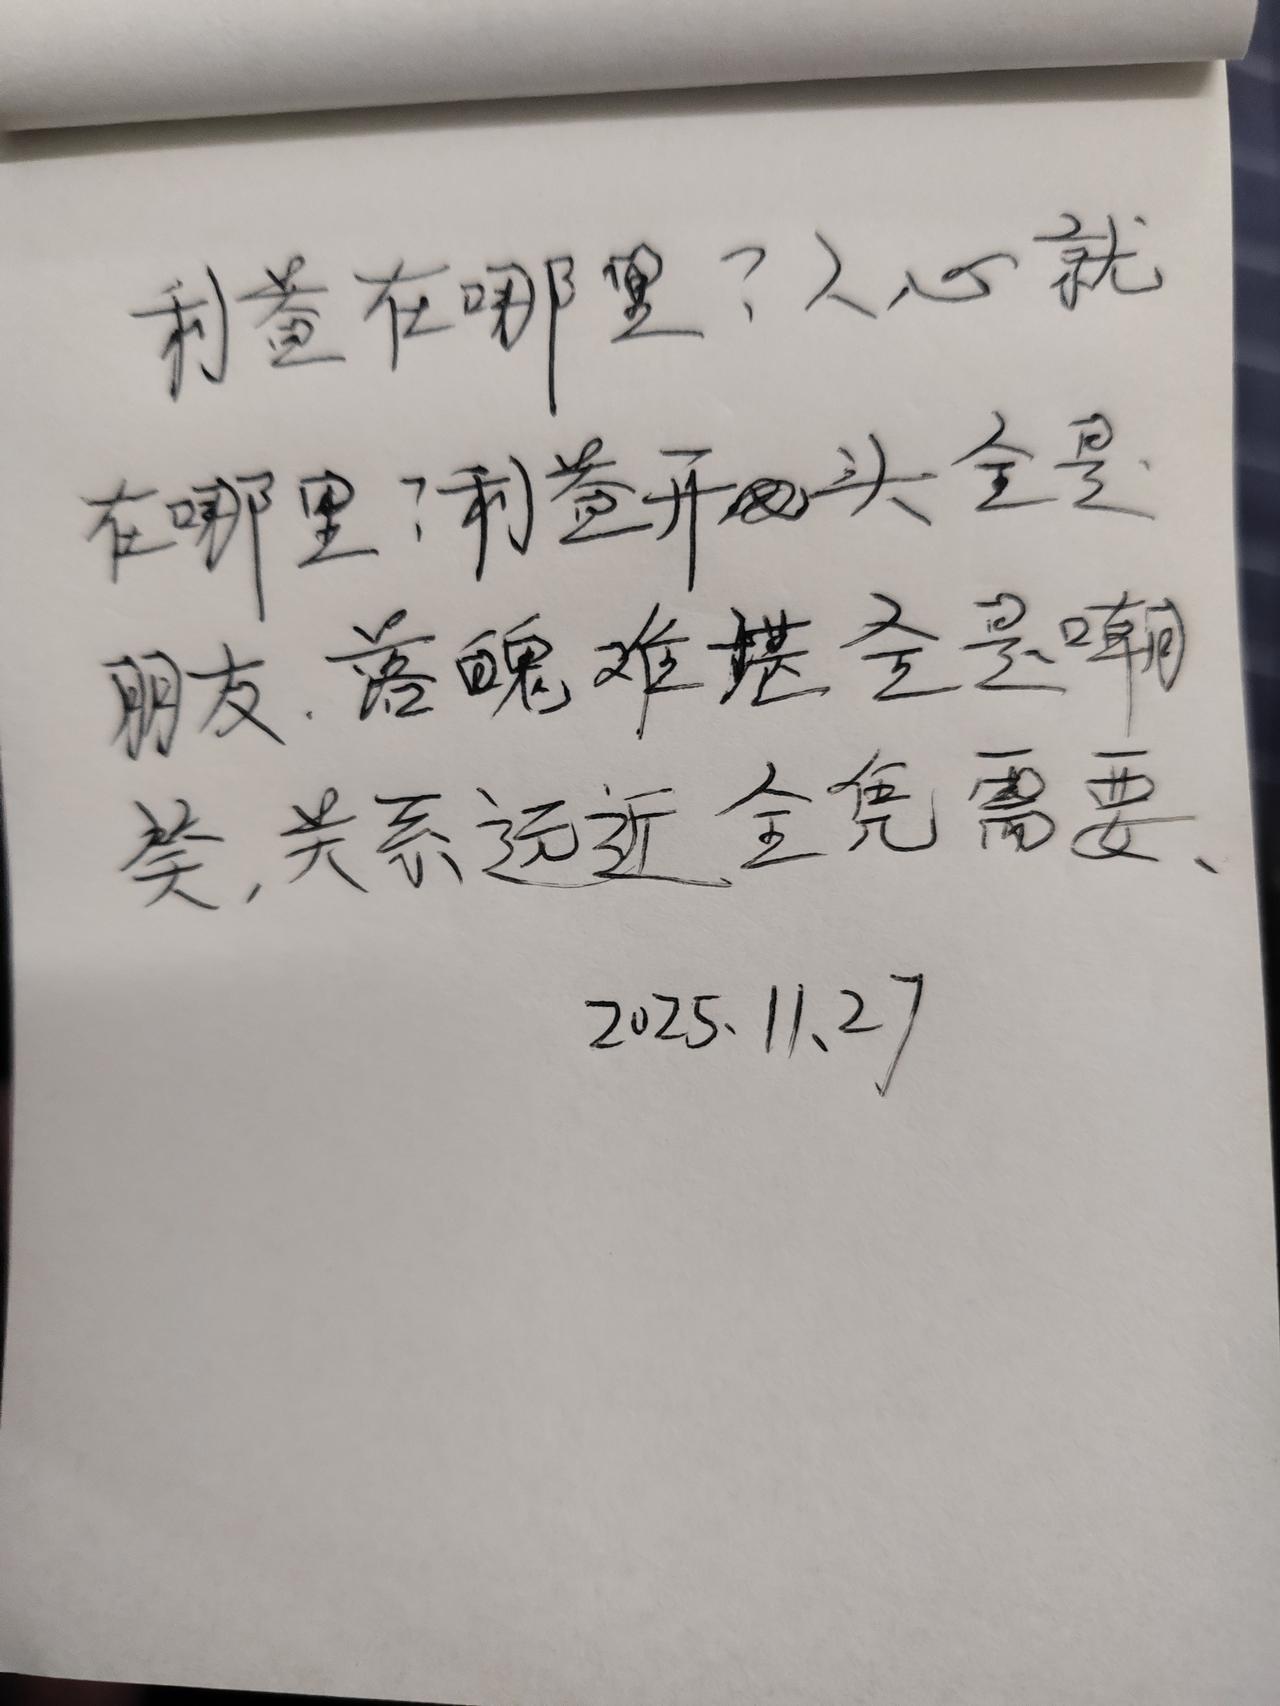 利益在哪里?人心就
在哪里?利益开头全是
朋友.落魄难堪全是嘲
笑,关系远近全凭需要、
2025.11.27